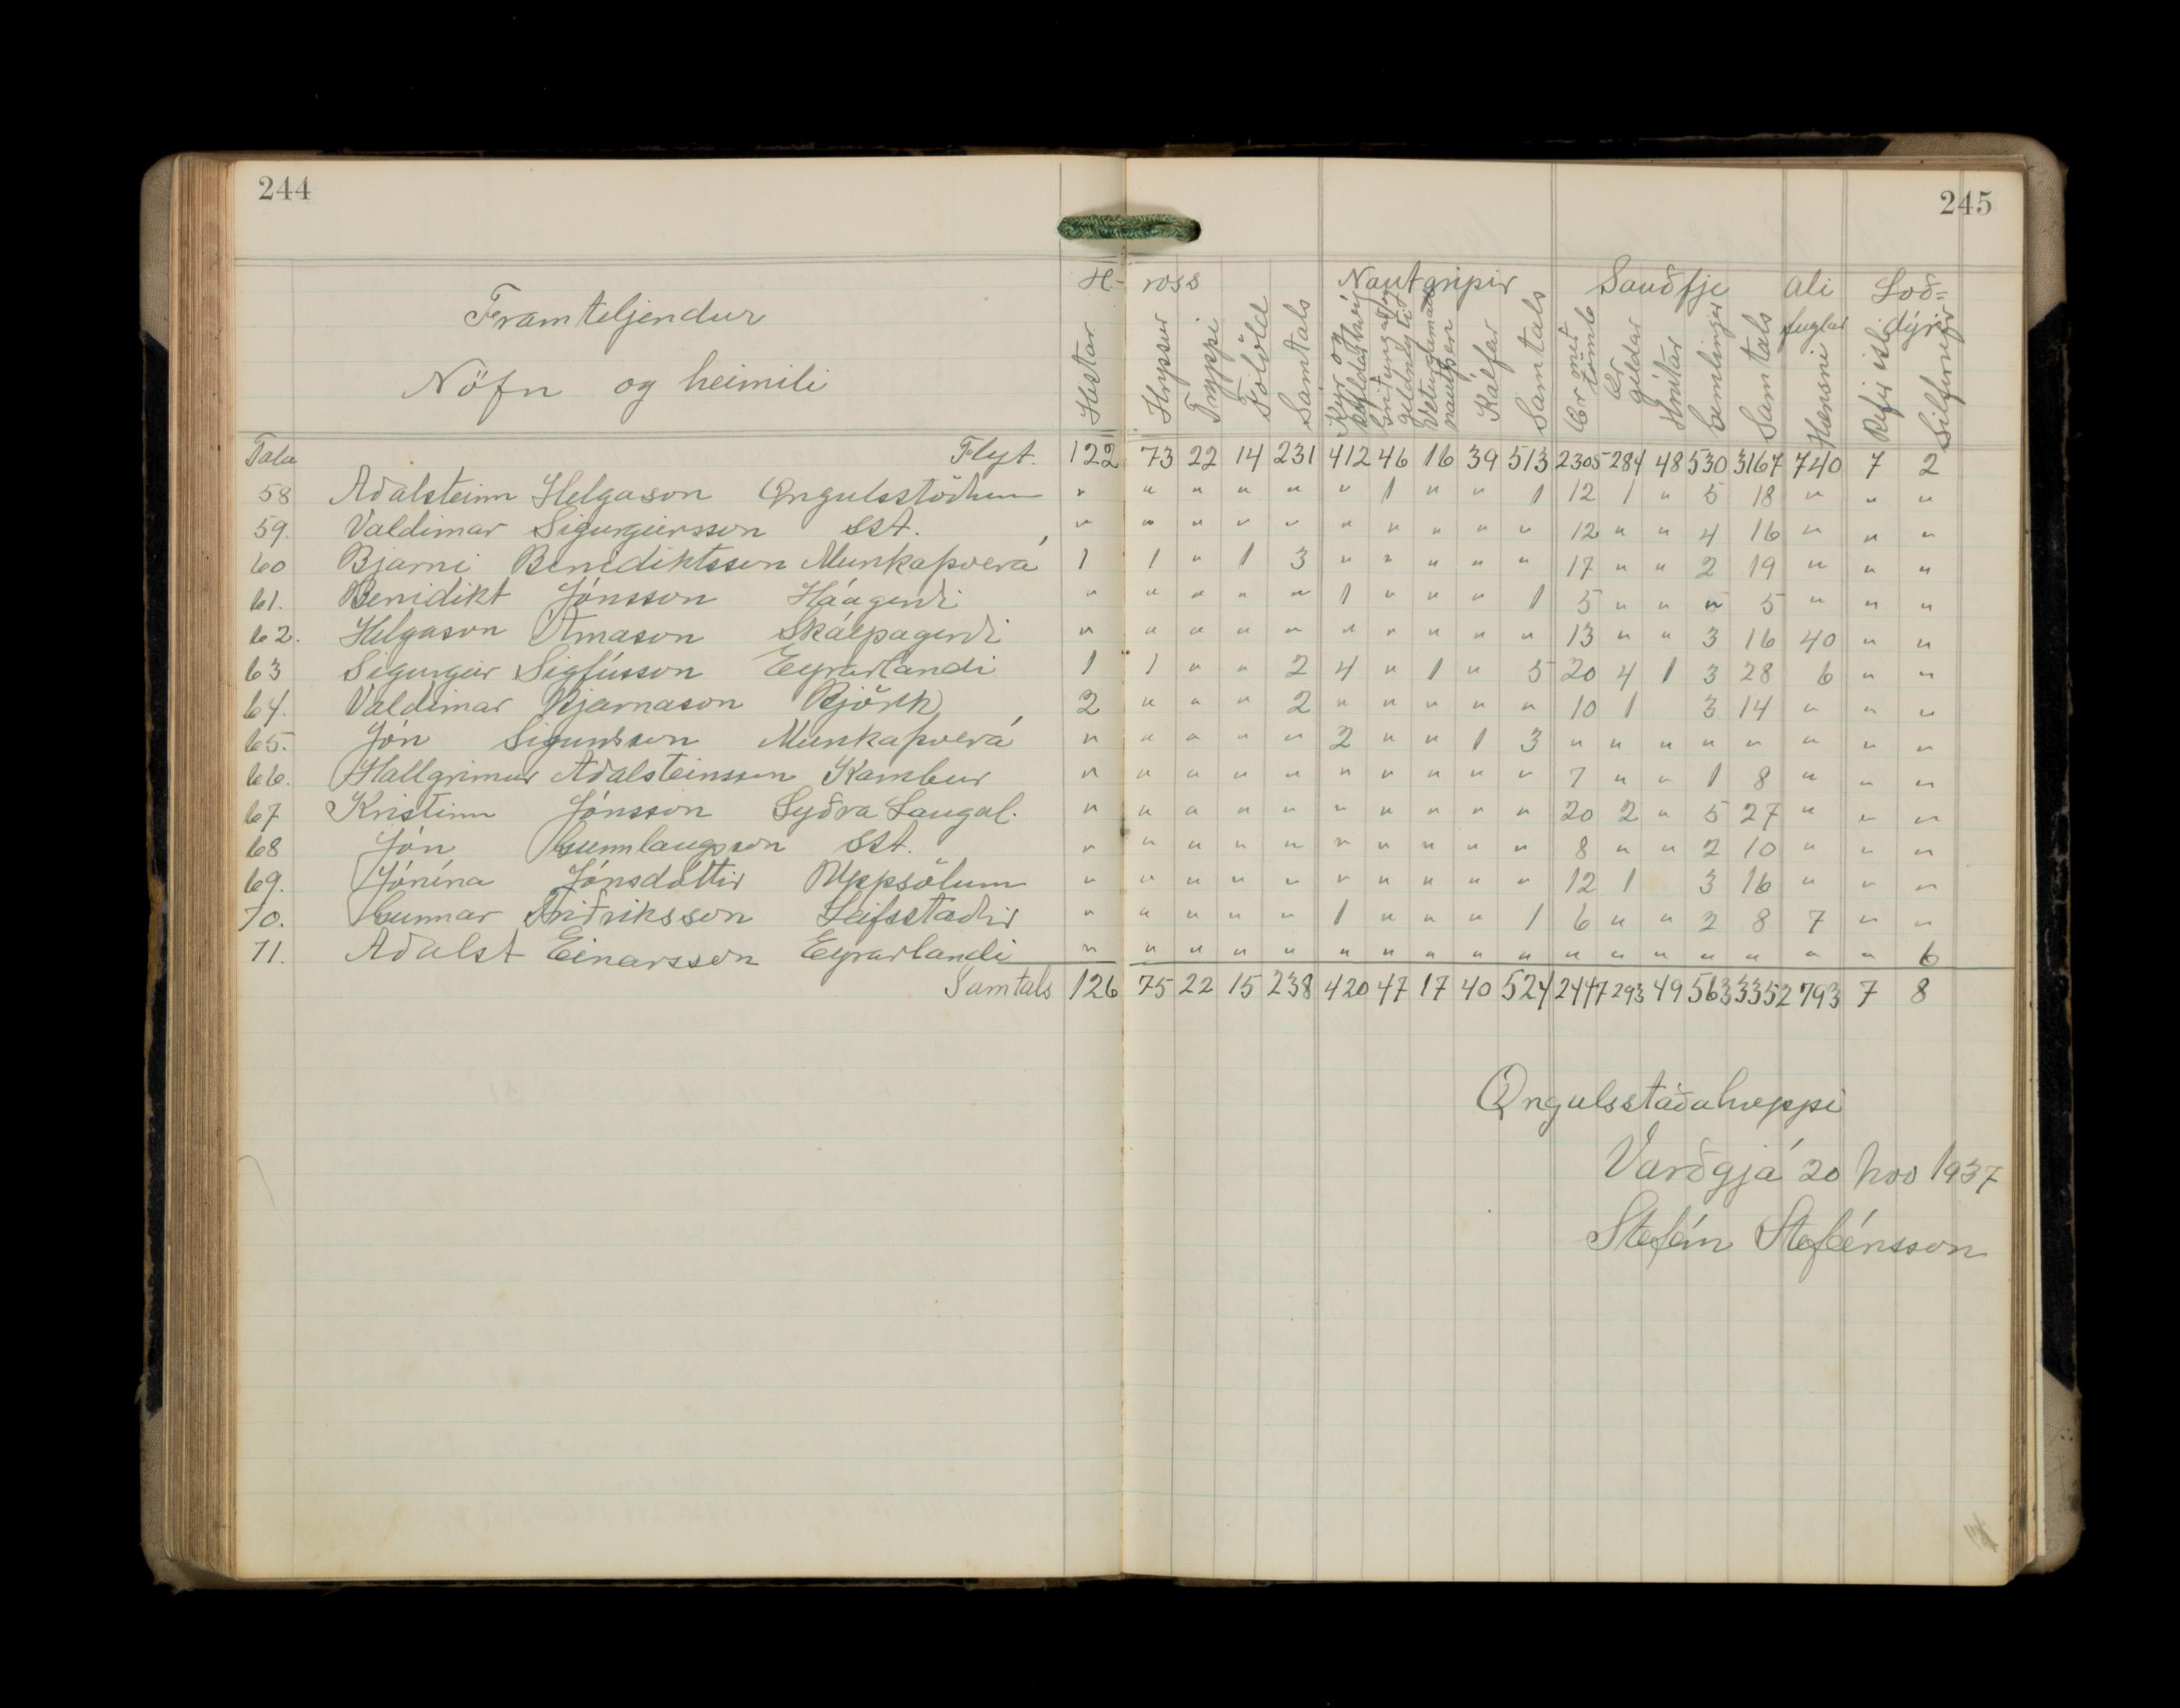 244
245
H- ross Nautgripir Sauðfje ali Loð=
Framteljendur fuglar dýr
Nöfn og heimili Hestar Hryssur Tryppi Fölöld Samtals Kýr og Kálfar Samtals Ær með lömb Ær geldar Hrútar Gemlingar Samtals Hænsni Refir ísl Silfurrefir
Tala Flyt. 122 73 22 14 231 412 46 16 39 513 2305 284 48 530 3167 740 7 2
58 Aðalsteinn Helgason Öngulsstöðum " " " " " " 1 " " 1 12 1 " 5 18 " " "
59. Valdimar Sigurgeirsson sst. " " " " " " " " " " 12 " " 4 16 " " "
60 Bjarni Benediktsson Munkaþverá 1 1 " 1 3 " " " " " 17 " " 2 19 " " "
61. Benidikt Jónsson Háagerði " " " " " 1 " " " 1 5 " " " 5 " " "
62. Helgason Árnason Skálpagerði " " " " " " " " " " 13 " " 3 16 40 " "
63 Sigurgeir Sigfússon Eyrarlandi 1 1 " " 2 4 " 1 " 5 20 4 1 3 28 6 " "
64. Valdimar Bjarnason Björk 2 " " " 2 " " " " " 10 1 3 14 " " "
65. Jón Sigurðsson Munkaþverá " " " " " 2 " " 1 3 " " " " " " " "
66. Hallgrimur Aðalsteinsson Kambur " " " " " " " " " " 7 " " 1 8 " " "
67 Kristinn Jónsson Syðra Laugal. " " " " " " " " " " 20 2 " 5 27 " " "
68 Jón Gunnlaugsson sst. " " " " " " " " " " 8 " " 2 10 " " "
69. Jónína Jónsdóttir Uppsölum " " " " " " " " " " 12 1 3 16 " " "
70. Gunnar Friðriksson Leifsstaðir " " " " " 1 " " " 1 6 " " 2 8 7 " "
71. Aðalst Einarsson Eyrarlandi " " " " " " " " " " " " " " " " " 6
Samtals 126 75 22 15 238 420 47 17 40 524 2447 293 49 563 3352 793 7 8
Öngulsstaðahreppi
Varðgjá 20 nov 1937
Stefán Stefánsson